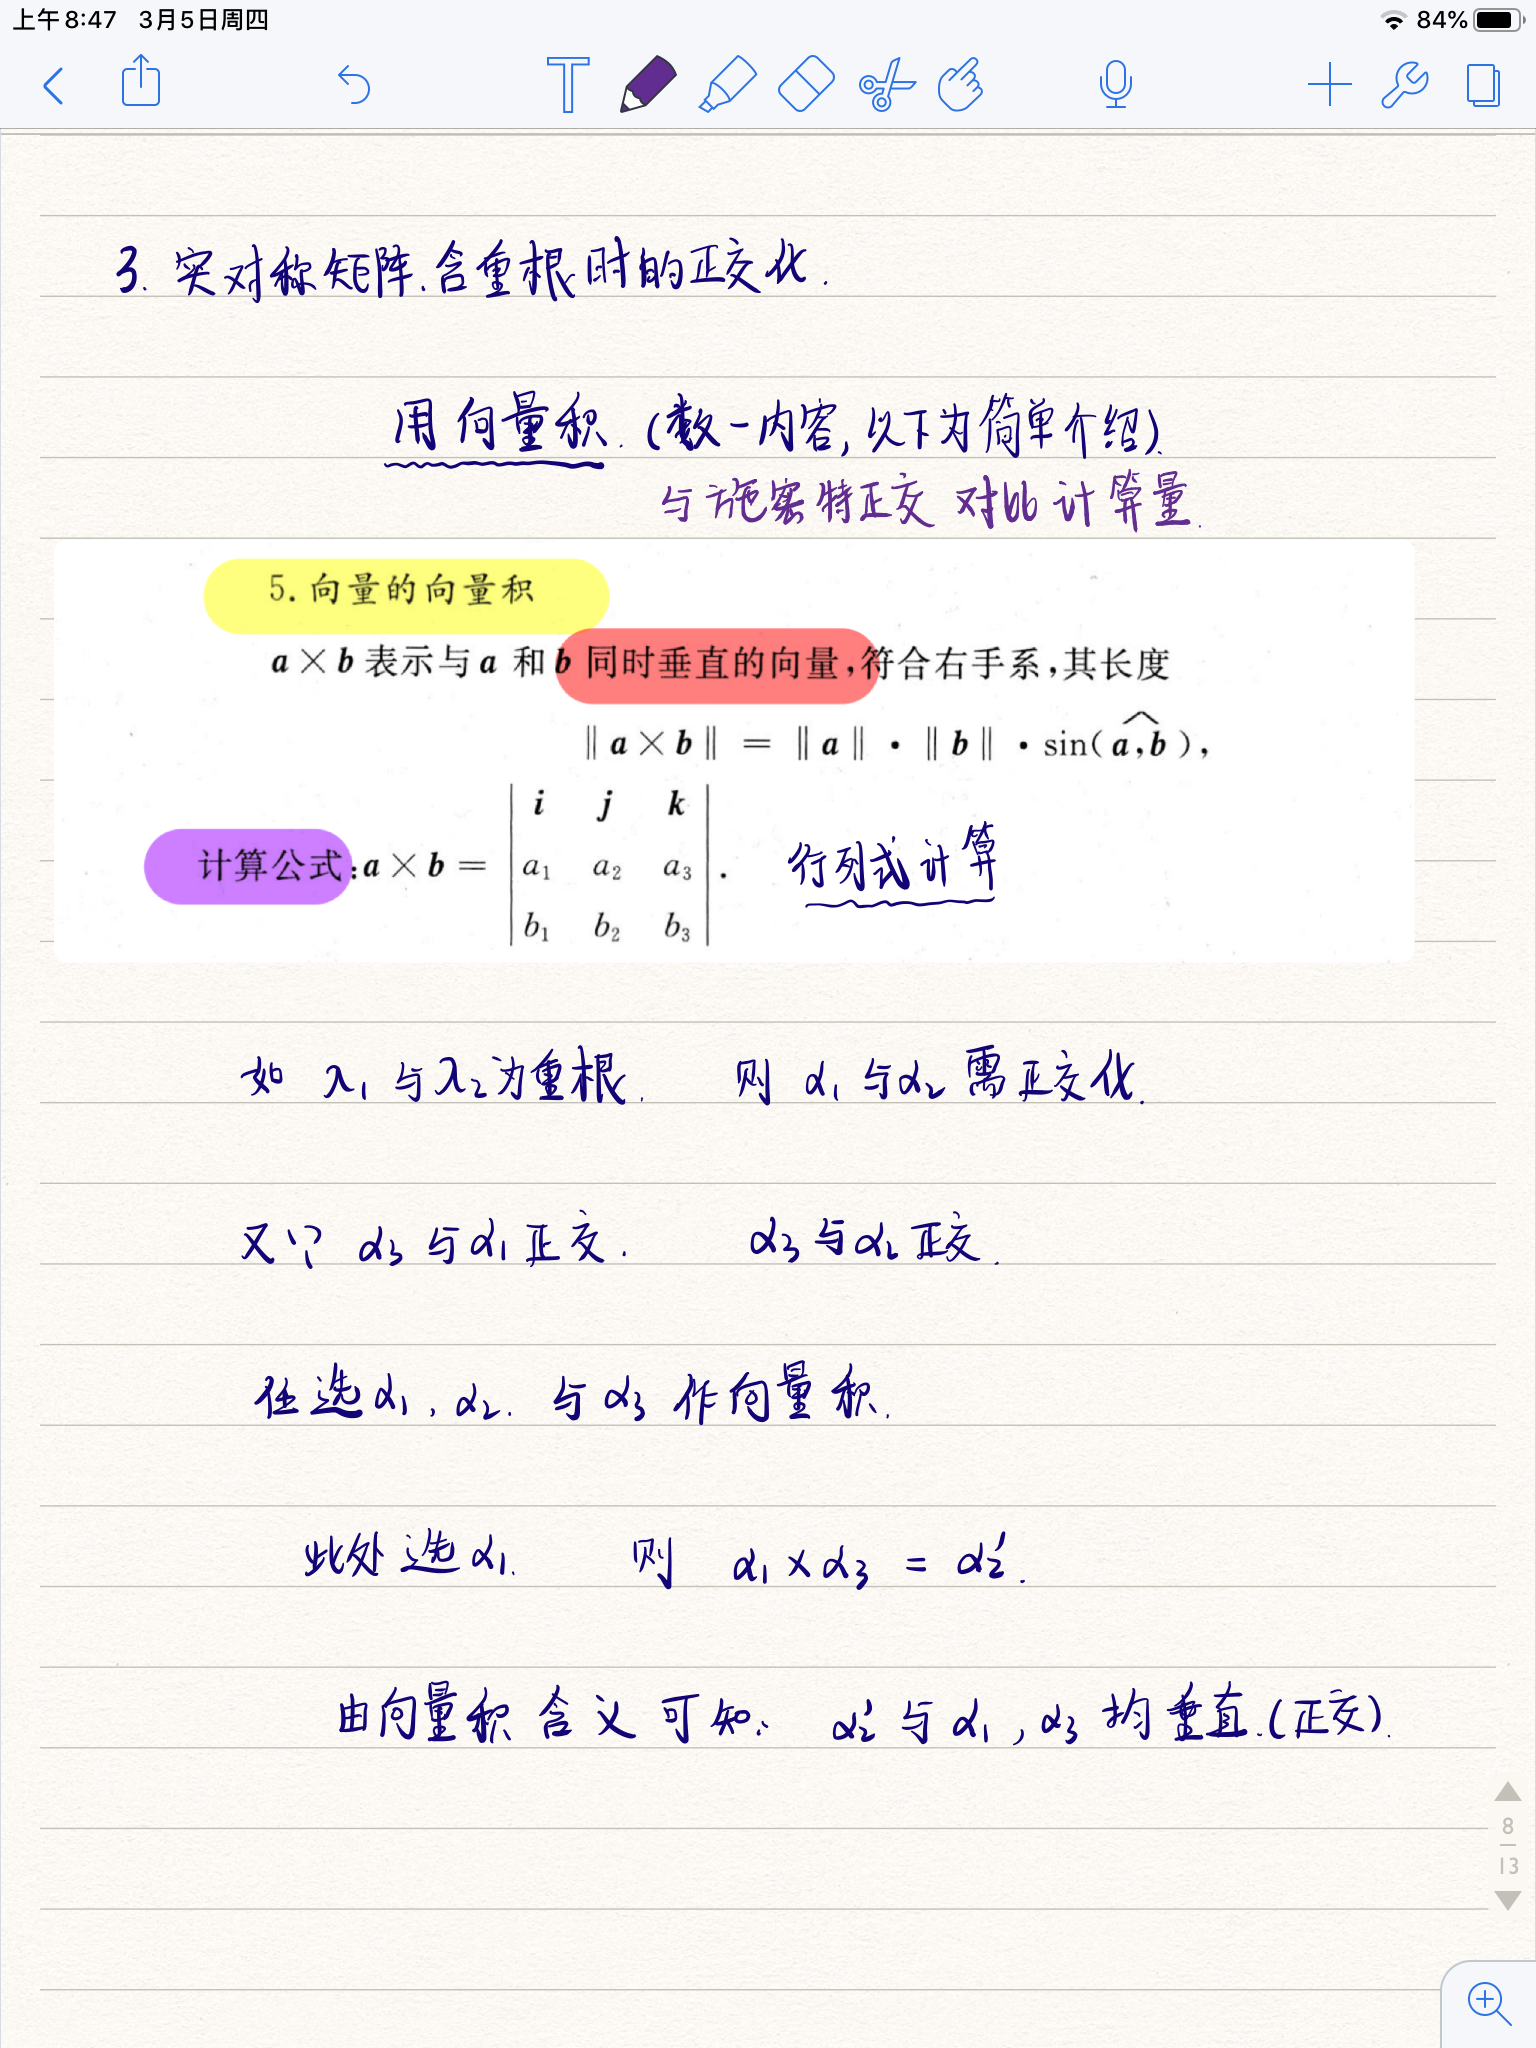 上午8:47 3月5日周四 84%
T
3. 实对称矩阵.含重根时的正交化.
用向量积.(数一内容,以下为简单介绍).
与施密特正交 对比计算量.
5. 向量的向量积
a × b 表示与 a 和 b 同时垂直的向量,符合右手系,其长度
‖ a × b ‖ = ‖ a ‖ · ‖ b ‖ · sin( a,b ),
i j k
计算公式:a × b = a₁ a₂ a₃ . 行列式计算
b₁ b₂ b₃
如 λ₁ 与 λ₂ 为重根. 则 α₁ 与 α₂ 需正交化.
又∵ α₃ 与 α₁ 正交. α₃ 与 α₂ 正交.
任选 α₁, α₂. 与 α₃ 作向量积.
此处选 α₁. 则 α₁ × α₃ = α₂'.
由向量积含义可知: α₂' 与 α₁, α₃ 均垂直.(正交).
8
13